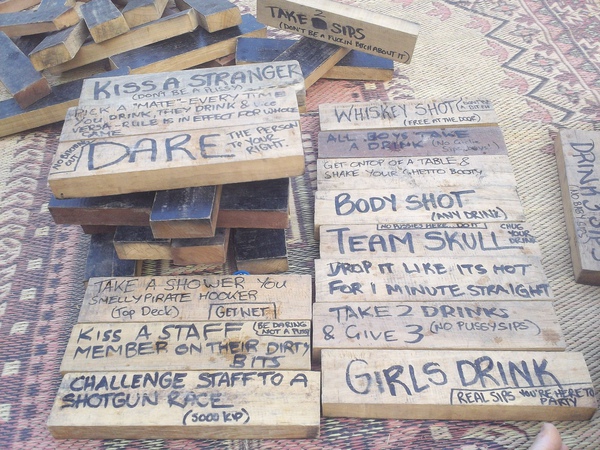 TAKE 2 SIPS
(DON'T BE A FUCKIN BITCH ABOUT IT)
KISS A STRANGER
(DON'T BE A PUSSY)
PICK A "MATE" - EVERY TIME
YOU DRINK, THEY DRINK & VICE
VERSA. RULE IS IN EFFECT FOR WHOLE
GAME.
NO BACKING OUT
DARE THE PERSON
TO YOUR
RIGHT.
TAKE A SHOWER YOU
SMELLY PIRATE HOOKER
(TOP DECK) GET WET
KISS A STAFF (BE DARING
NOT A PUSSY)
MEMBER ON THEIR DIRTY
BITS
CHALLENGE STAFF TO A
SHOTGUN RACE
(5000 KIP)
WHISKEY SHOT
(FREE AT THE DOOR)
ALL BOYS TAKE
A DRINK (No Girly
Sips
GET ON TOP OF A TABLE &
SHAKE YOUR GHETTO BOOTY
BODY SHOT
(ANY DRINK)
NO PUSSIES HERE. DO IT
TEAM SKULL CHUG
YOUR
DRINK
DROP IT LIKE ITS HOT
FOR 1 MINUTE STRAIGHT
TAKE 2 DRINKS
& GIVE 3 (NO PUSSY SIPS)
GIRLS DRINK
REAL SIPS YOU'RE HERE TO
PARTY
DRINK 3 SIPS